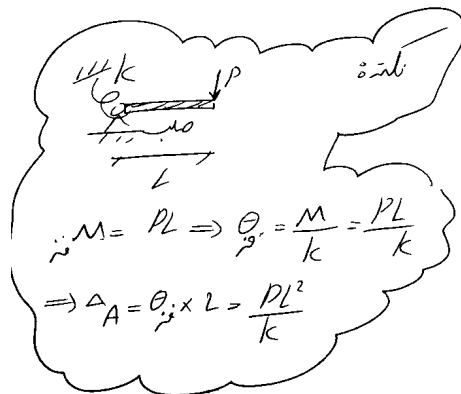 نکته
K
P
صلب
L
M فنر = PL ⇒ θ فنر = M/k = PL/k
⇒ Δ_A = θ فنر × L = PL²/k